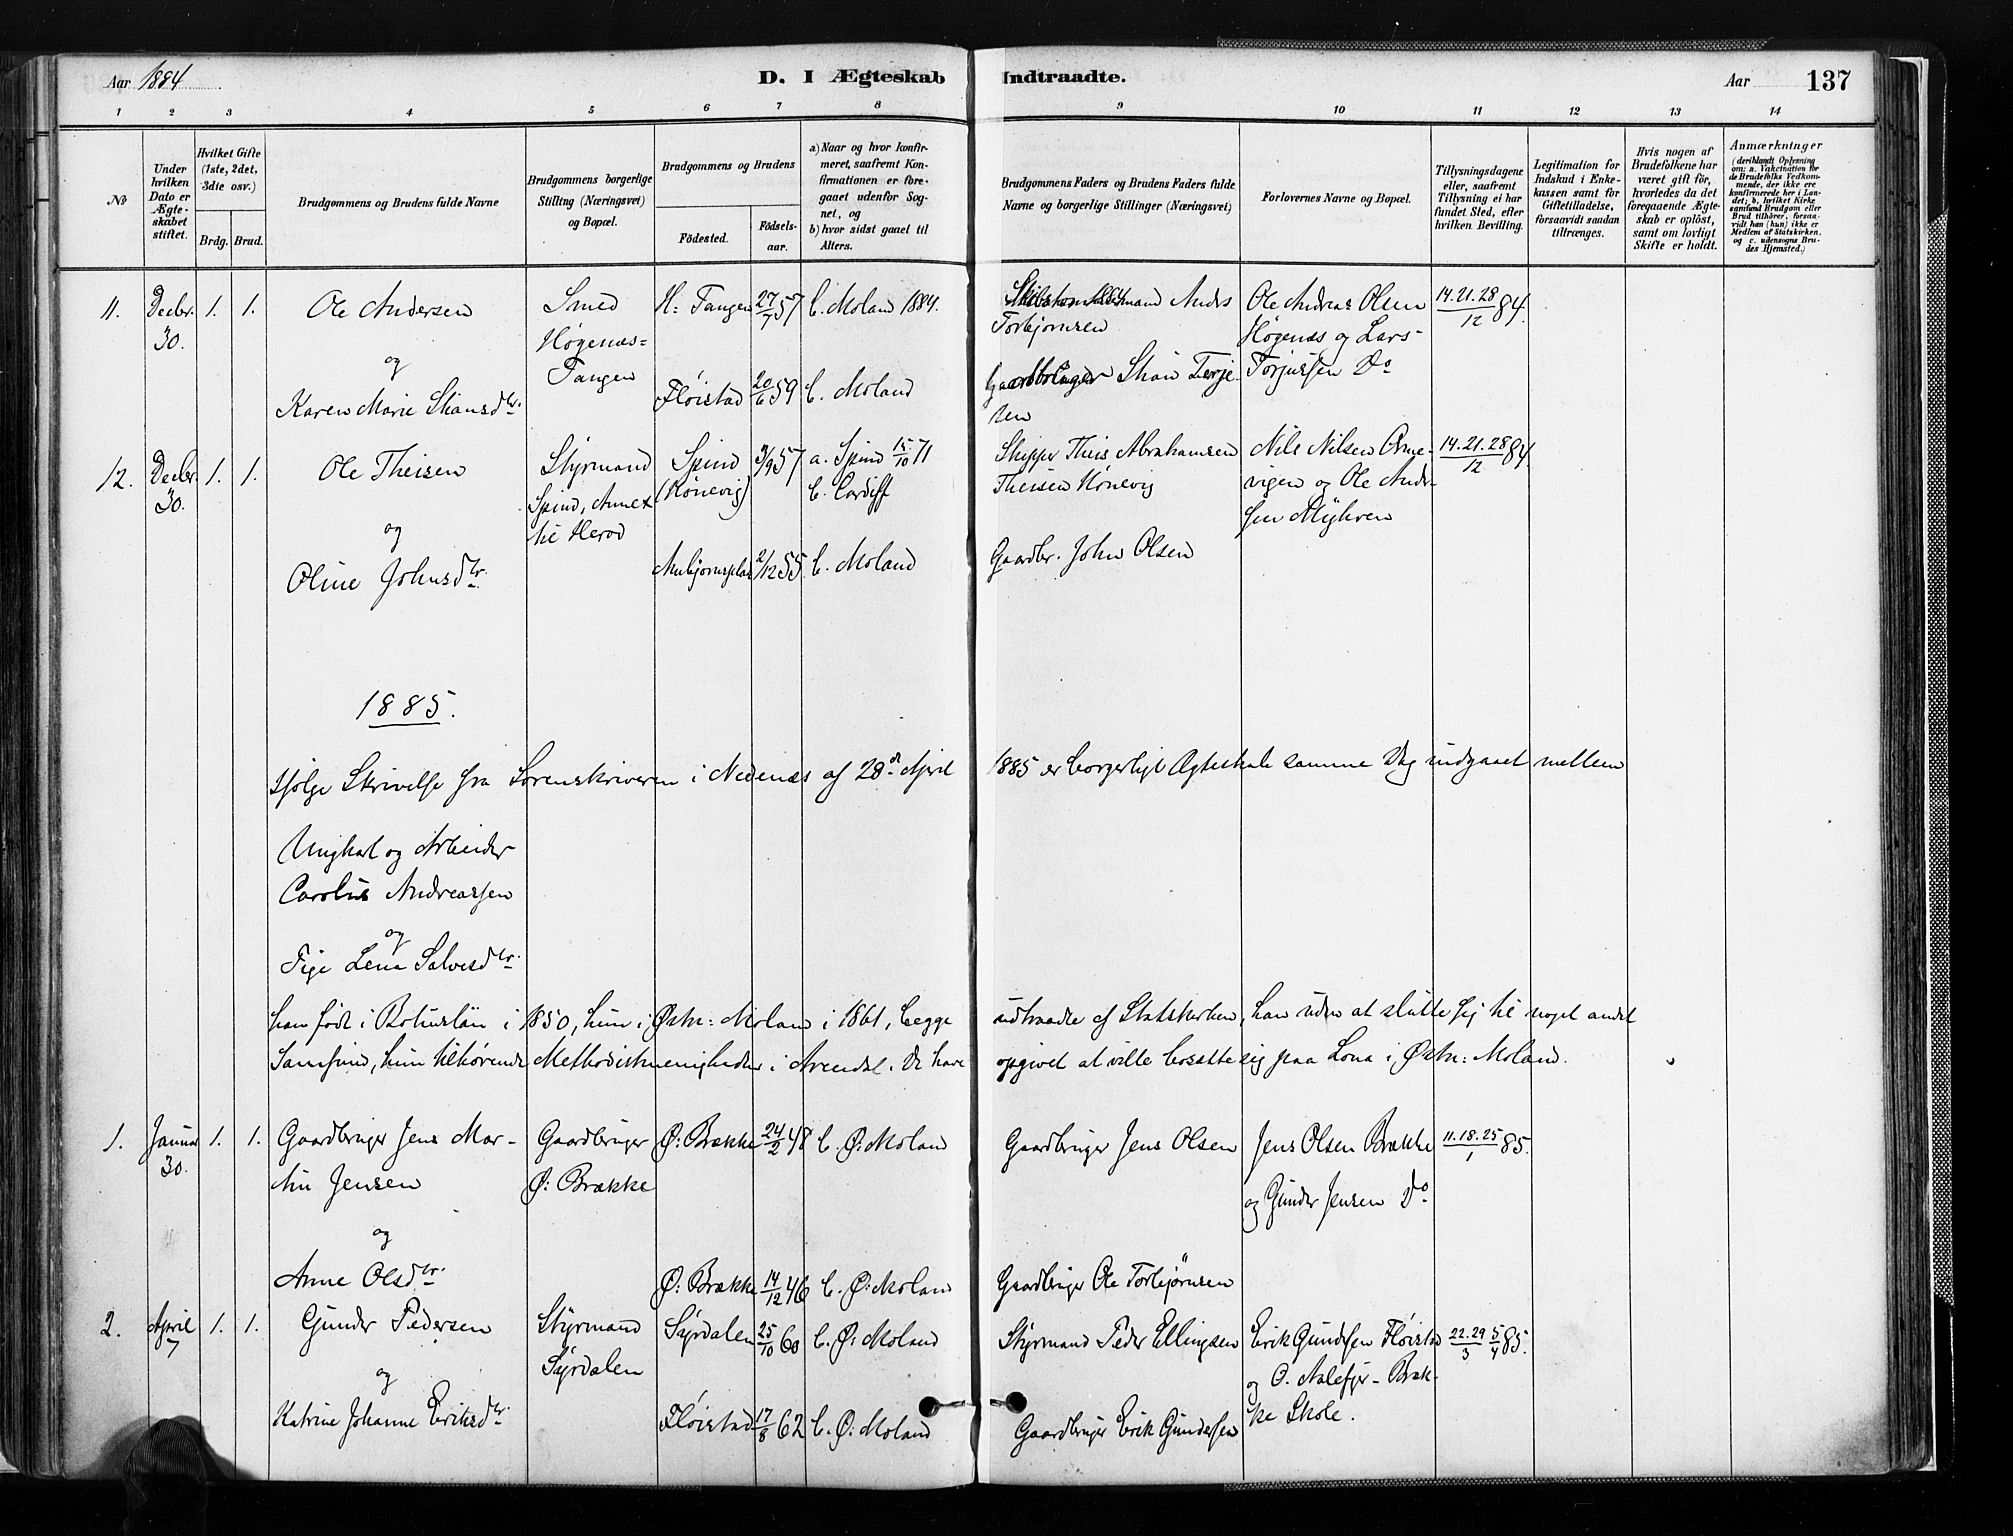 Aar 1884
D. I Ægteskab Indtraadte.
Aar
137
1 2 3 4 5 6 7 8 9 10 11 12 13 14
No
Under hvilken Dato er Ægteskabet stiftet.
Hvilket Gifte (1ste, 2det, 3die osv.)
Brdg. Brud.
Brudgommens og Brudens fulde Navne
Brudgommens borgerlige Stilling (Næringsvei) og Bopæl.
Brudgommens og Brudens
Fødested.
Fødselsaar.
a) Naar og hvor konfirmeret, saafremt Konfirmationen er foregaaet udenfor Sognet, og
b) hvor sidst gaaet til Alters.
Brudgommens Faders og Brudens Faders fulde Navne og borgerlige Stillinger (Næringsvei)
Forlovernes Navne og Bopæl.
Tillysningsdagene eller, saafremt Tillysning ei har fundet Sted, efter hvilken Bevilling.
Legitimation for Indskud i Enkekassen samt for Giftetilladelse, forsaavidt saadan tiltrænges.
Hvis nogen af Brudefolkene har været gift før, hvorledes da det foregaaende Ægteskab er opløst, samt om lovligt Skifte er holdt.
Anmærkninger (deriblandt Oplysning om: a. Vakcination for de Brudefolks Vedkommende, der ikke ere konfirmerede her i Landet; b. hvilket Kirkesamfund Brudgom eller Brud tilhører, forsaavidt han (hun) ikke er Medlem af Statskirken, og c. udensogns Brudes Hjemsted.)
11. Decbr. 30. 1. 1. Ole Andersen Smed Høgenæs= Tangen H: Tangen 27/7 57 b. Moland 1884. Anders Torbjørnsen Ole Andreas Olsen Høgenæs og Lars Torjussen Do 14.21.28/12 84.
og
Karen Marie Skansdtr. Fløistad 20/6 59 b. Moland Gaardbruger Skan Terjesen
12. Decbr. 30. 1. 1. Ole Theisen Styrmand Spind, Annex til Herod Spind (Kønevig) 3/9 57 a. Spind 15/10 71 b. Cardiff Skipper Theis Abrahamsen Theisen Kønevig Nils Nilsen Arnevigen og Ole Andersen Myhren 14.21.28/12 84.
og
Oline Johnsdtr. 2/12 55. b. Moland Gaardbr. John Olsen
1885.
Ifølge Skrivelse fra Sorenskriveren i Nedenæs af 28de April 1885 er borgerligt Ægteskab samme Dag indgaaet mellem
Ungkarl og Arbeider
Carolius Andreassen
og
Pige Lena Salvesdtr.
han født i Bohuslän i 1850, hun i Østre: Moland i 1861, begge udtraadte af Statskirken, han uden at slutte sig til noget andet
Samfund, hun tilhørende Methodistmenigheden i Arendal. De have opgivet at ville bosætte sig paa Lona i Østre: Moland.
1. Januar 30. 1. 1. Gaardbruger Jens Martin Jensen Gaardbruger Ø: Brække Ø: Brække 24/2 48 b. Ø: Moland Gaardbruger Jens Olsen Jens Olsen Brække og Gunder Jensen Do 11.18.25/1 85.
og
Anne Olsdtr. Ø: Brække 14/12 46 b. Ø: Moland Gaardbruger Ole Torbjørnsen
2. April 7 1. 1. Gunder Pedersen Styrmand Syrdalen Syrdalen 25/10 60 b. Ø: Moland Styrmand Peder Ellingsen Erik Gundersen Fløistad og O. Aalefjær - Brække Skole. 22.29/3 5/4 85.
og
Katrine Johanne Eriksdtr. Fløistad 17/8 62 b. Ø: Moland Gaardbruger Erik Gundersen